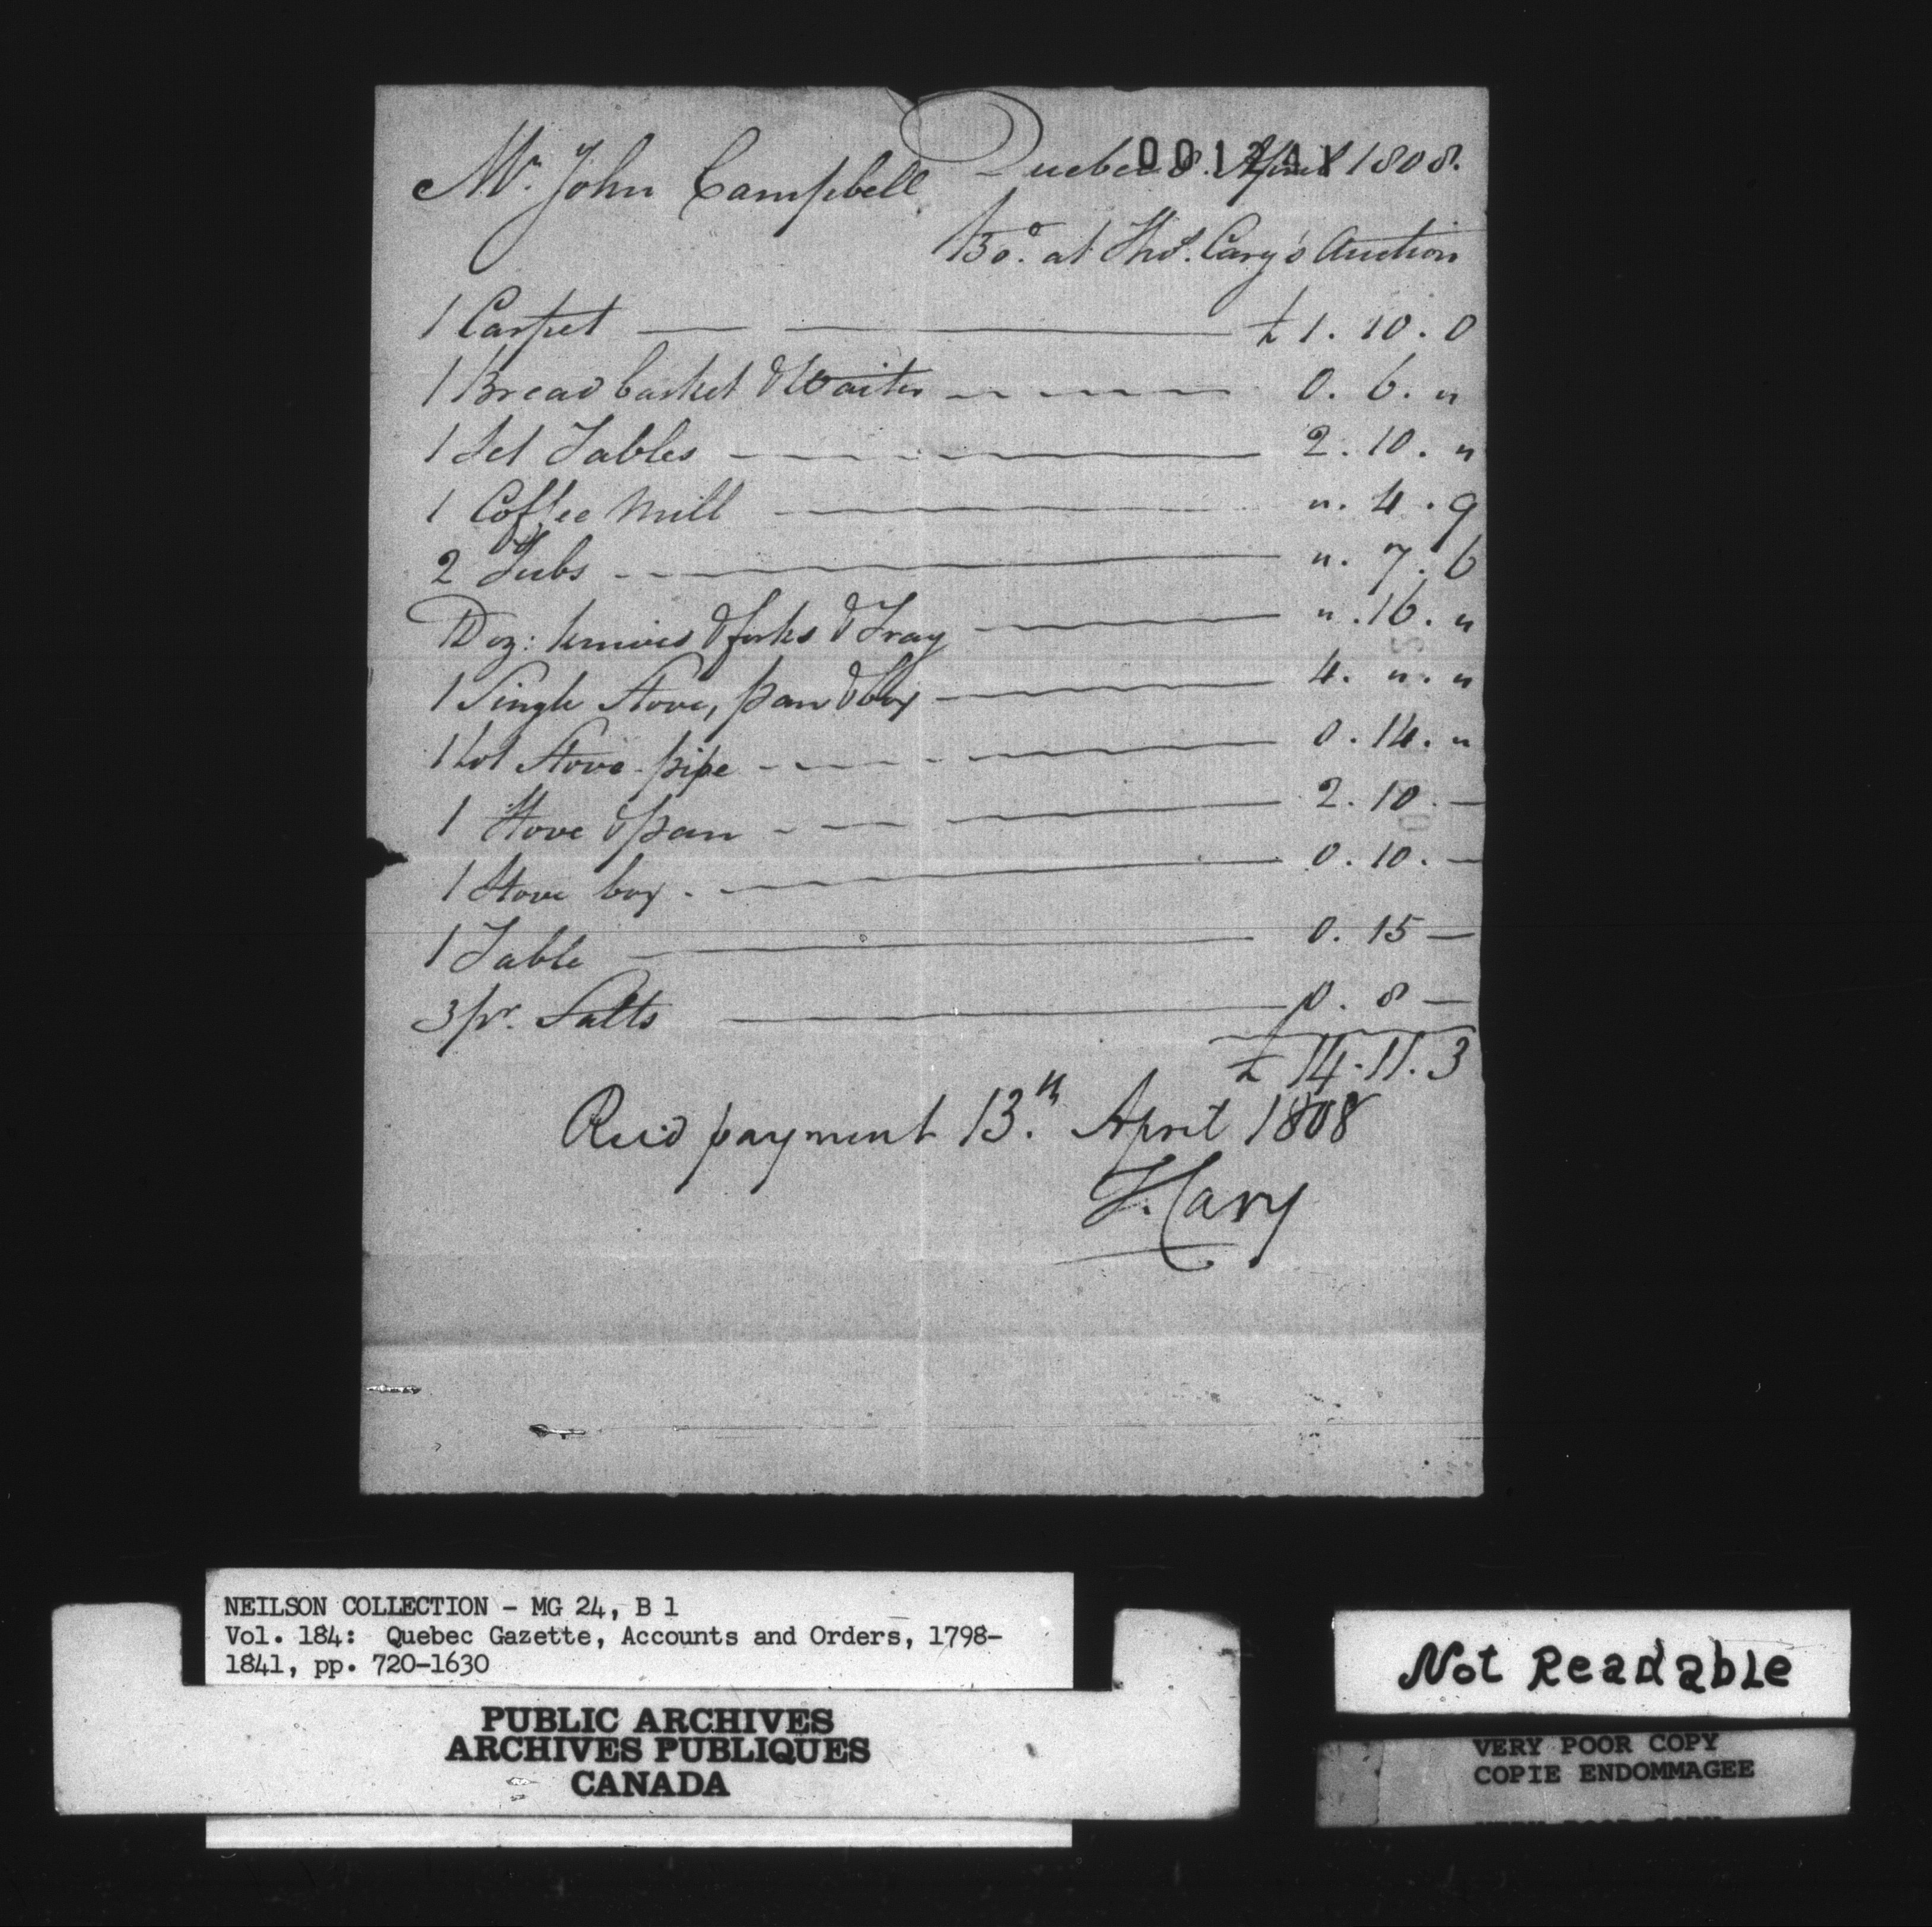 Quebec 8. April 1808.
Mr. John Campbell
Bot. at Thos. Cary's Auction
1 Carpet — — — £ 1. 10. 0
1 Bread basket & Waiter — — — 0. 6. "
1 Set Tables — — — 2. 10. "
1 Coffee Mill — — " . 4 . 9
2 Tubs — — — " . 7 . 6
Doz: knives & forks & Tray — — " . 16. "
1 Single Stove, pan & box — — 4. " . "
1 Lot Stove-pipe — — — 0. 14. "
1 Stove & pan — — — 2. 10. —
1 Stove box — — 0. 10. —
1 Table — — 0. 15 —
3 pr. Salts — — 0. 8 —
£ 14. 11. 3
Recd payment 13.th April 1808
T. Cary
NEILSON COLLECTION - MG 24, B 1
Vol. 184: Quebec Gazette, Accounts and Orders, 1798-
1841, pp. 720-1630
PUBLIC ARCHIVES
ARCHIVES PUBLIQUES
CANADA
Not Readable
VERY POOR COPY
COPIE ENDOMMAGEE